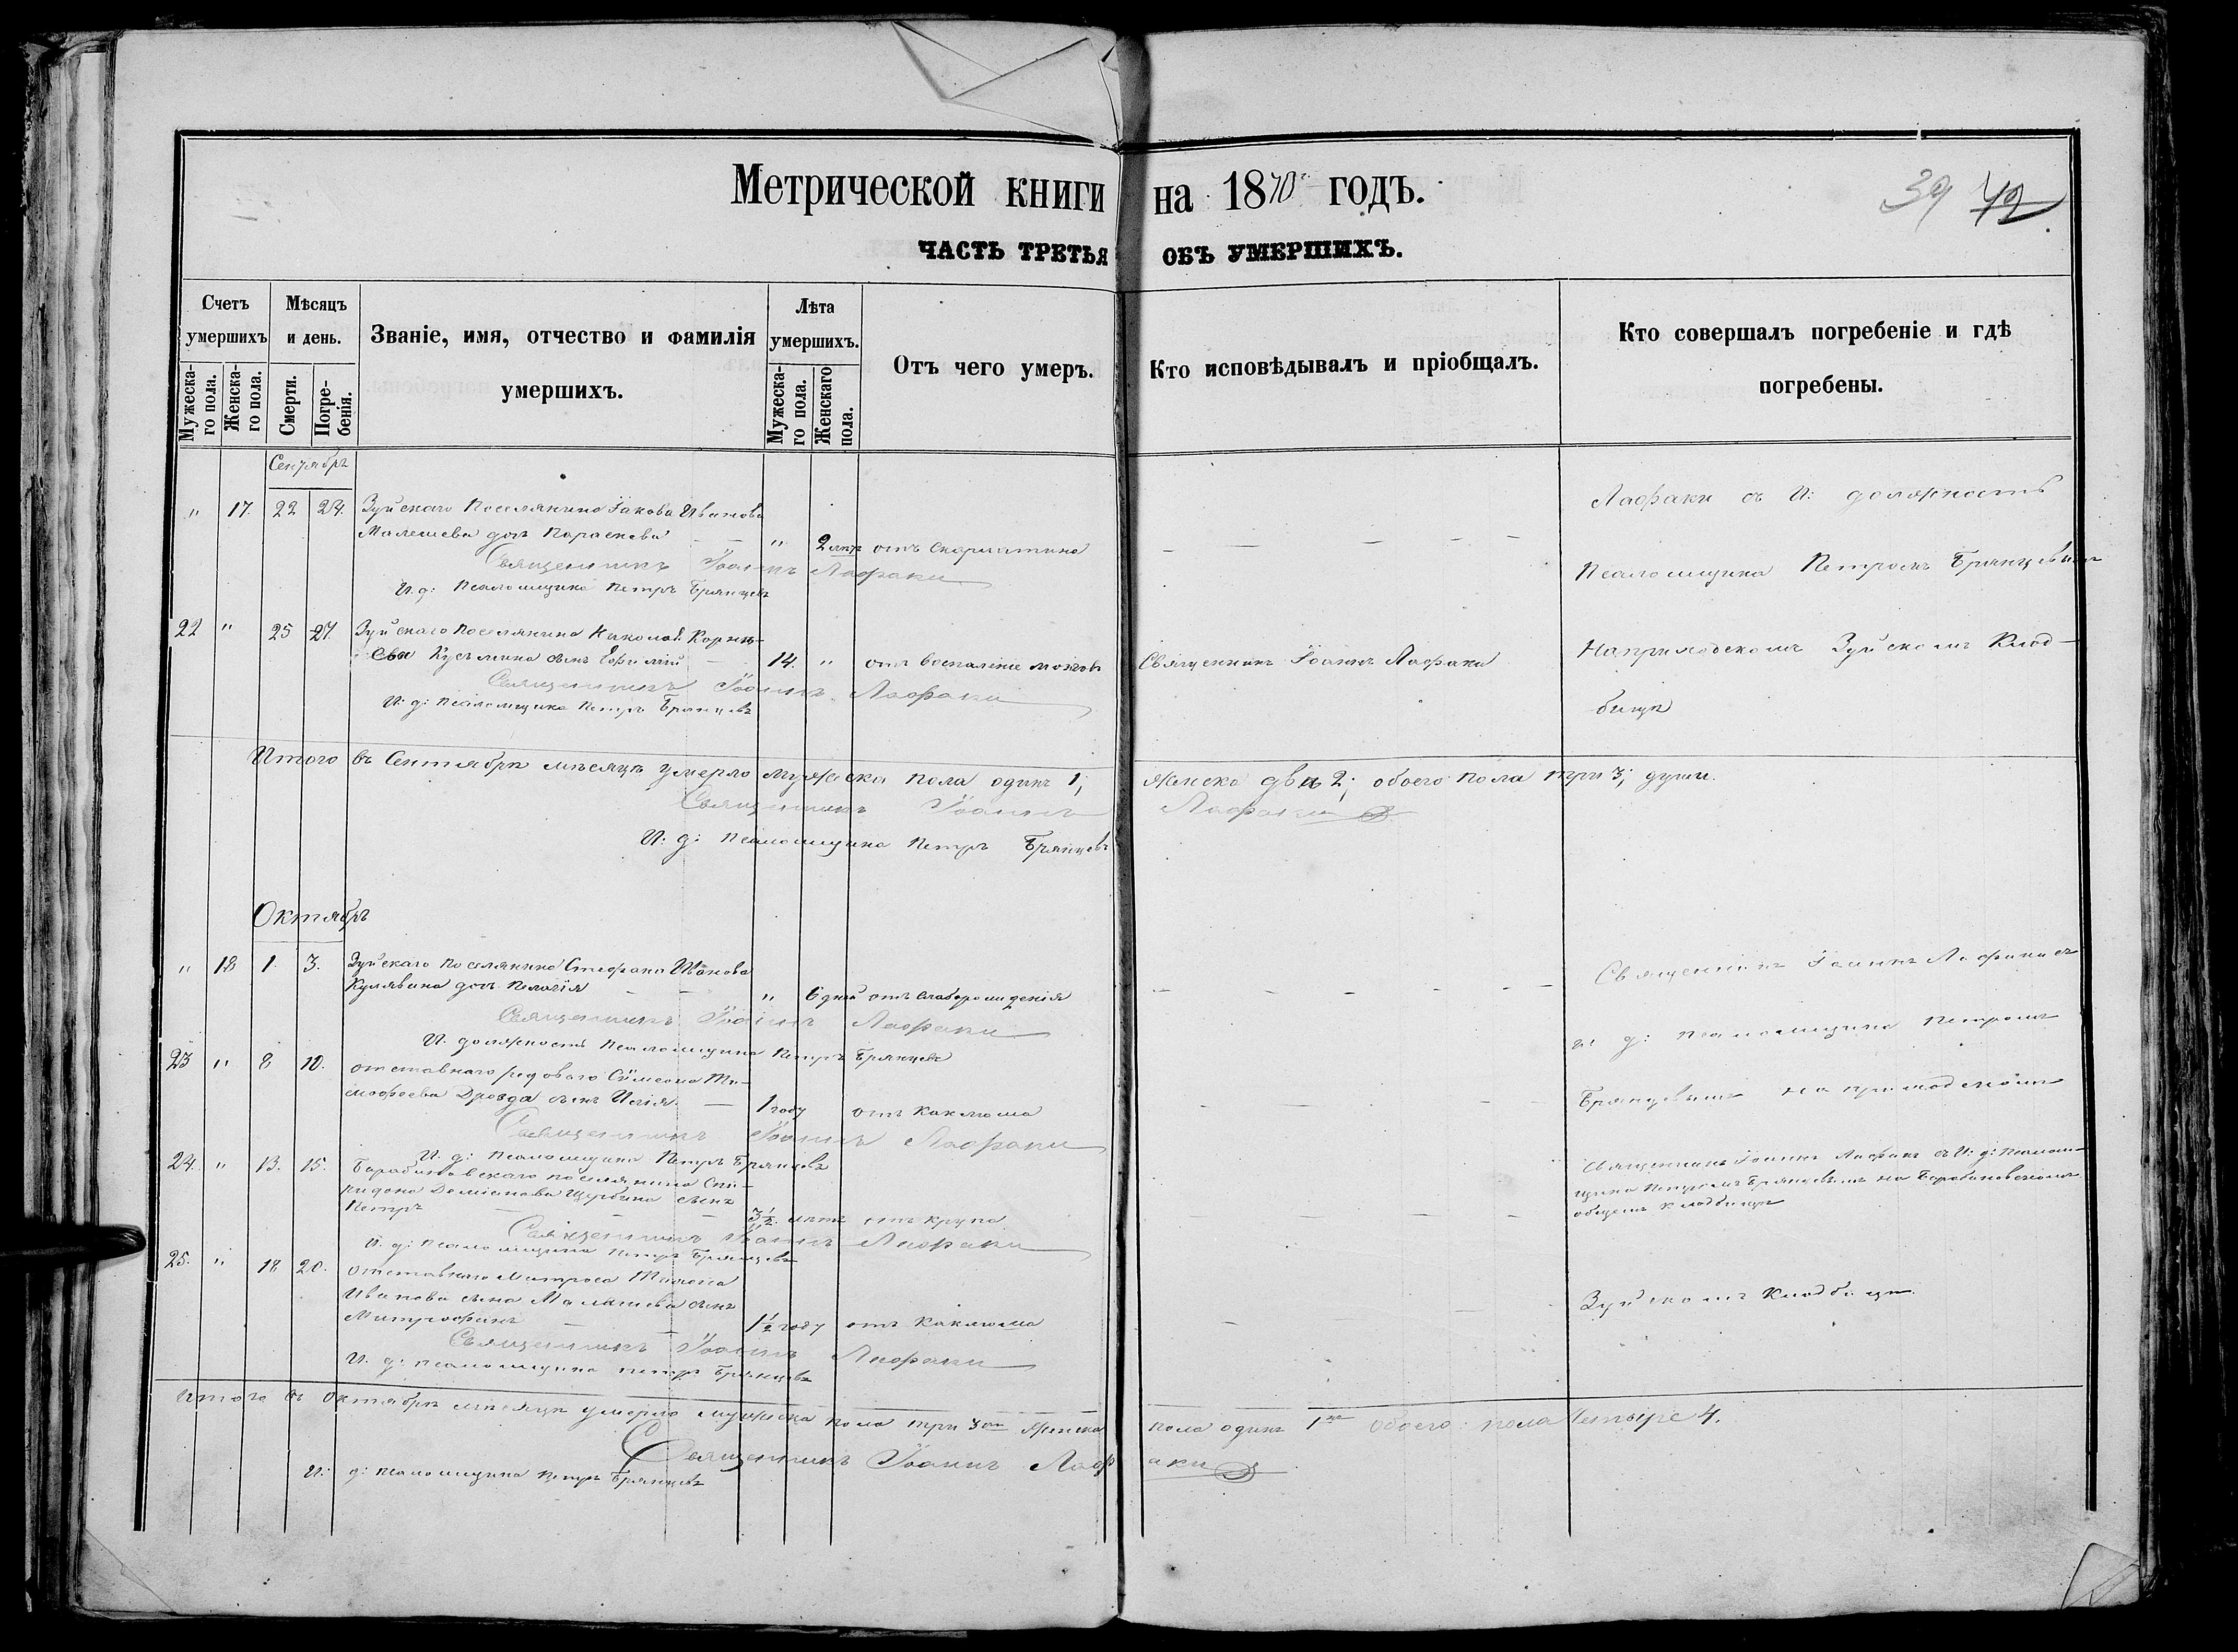 Метрической книги на 1870 годъ.
39 42
ЧАСТЬ ТРЕТЬЯ ОБЪ УМЕРШИХЪ.
Счетъ умершихъ
Мужеска-го пола.
Женска-го пола.
Мѣсяцъ и день.
Смерти.
Погре-бенія.
Званіе, имя, отчество и фамилія умершихъ.
Лѣта умершихъ.
Мужеска-го пола.
Женскаго пола.
Отъ чего умеръ.
Кто исповѣдывалъ и пріобщалъ.
Кто совершалъ погребеніе и гдѣ погребены.
Сентябрь
" 17. 22 24. Зуйскаго Поселянина Іакова Иванова
Малешева дочь Параскева " 2 лѣтъ отъ скарлатина
Священникъ Іоаннъ Лафаки
И. д: Псаломщика Петръ Брянцевъ
Лафаки съ И: должность
Псаломщика Петромъ Брянцевымъ
22 " 25 27 Зуйскаго Поселянина Николая Корнѣ-
ева Кузьмина сынъ Ефимій 14. " отъ воспаленіе мозговъ Священникъ Іоаннъ Лафаки
Священникъ Іоаннъ Лафаки
И: д: Псаломщика Петръ Брянцевъ
На приходскомъ Зуйскомъ Клад-
бищѣ
Итого въ Сентябрѣ мѣсяцѣ умерло мужеска пола одинъ 1, женска двѣ 2; обоего пола три 3; души.
Священникъ Іоаннъ Лафаки
И: д: Псаломщика Петръ Брянцевъ
Октябрь
" 18 1. 3. Зуйскаго Поселянина Стефана Иванова
Кулявина дочь Пелагія " 6 дней отъ слаборожденія
Священникъ Іоаннъ Лафаки
И. должность Псаломщика Петръ Брянцевъ
Священникъ Іоаннъ Лафаки съ
и д: Псаломщика Петромъ
23 " 8 10. отставнаго рядоваго Сѵмеона Ти-
мофеева Дрозда сынъ Илія. 1 году отъ Каклюша
Священникъ Іоаннъ Лафаки
И. д: Псаломщика Петръ Брянцевъ
Брянцевымъ на приходскомъ
24. " 13. 15. Барабановскаго поселянина Спи-
ридона Даміанова Щербина сынъ
Петръ 3½ лѣтъ отъ крупа
Священникъ Іоаннъ Лафаки
И. д: Псаломщика Петръ Брянцевъ
Священникъ Іоаннъ Лафаки съ И: д: Псалом-
щика Петромъ Брянцевымъ на Барабановскомъ
общемъ кладбищѣ
25. " 18 20. отставнаго Матроса Тихона
Иванова сына Малешева сынъ
Митрофанъ 1½ году отъ Каклюша
Священникъ Іоаннъ Лафаки
И. д: Псаломщика Петръ Брянцевъ
Зуйскомъ Кладбищѣ.
Итого въ Октябрѣ мѣсяцѣ умерло мужеска пола три 3 женска пола одинъ 1 обоего пола Четыре 4.
Священникъ Іоаннъ Лафаки
И: д: Псаломщика Петръ Брянцевъ